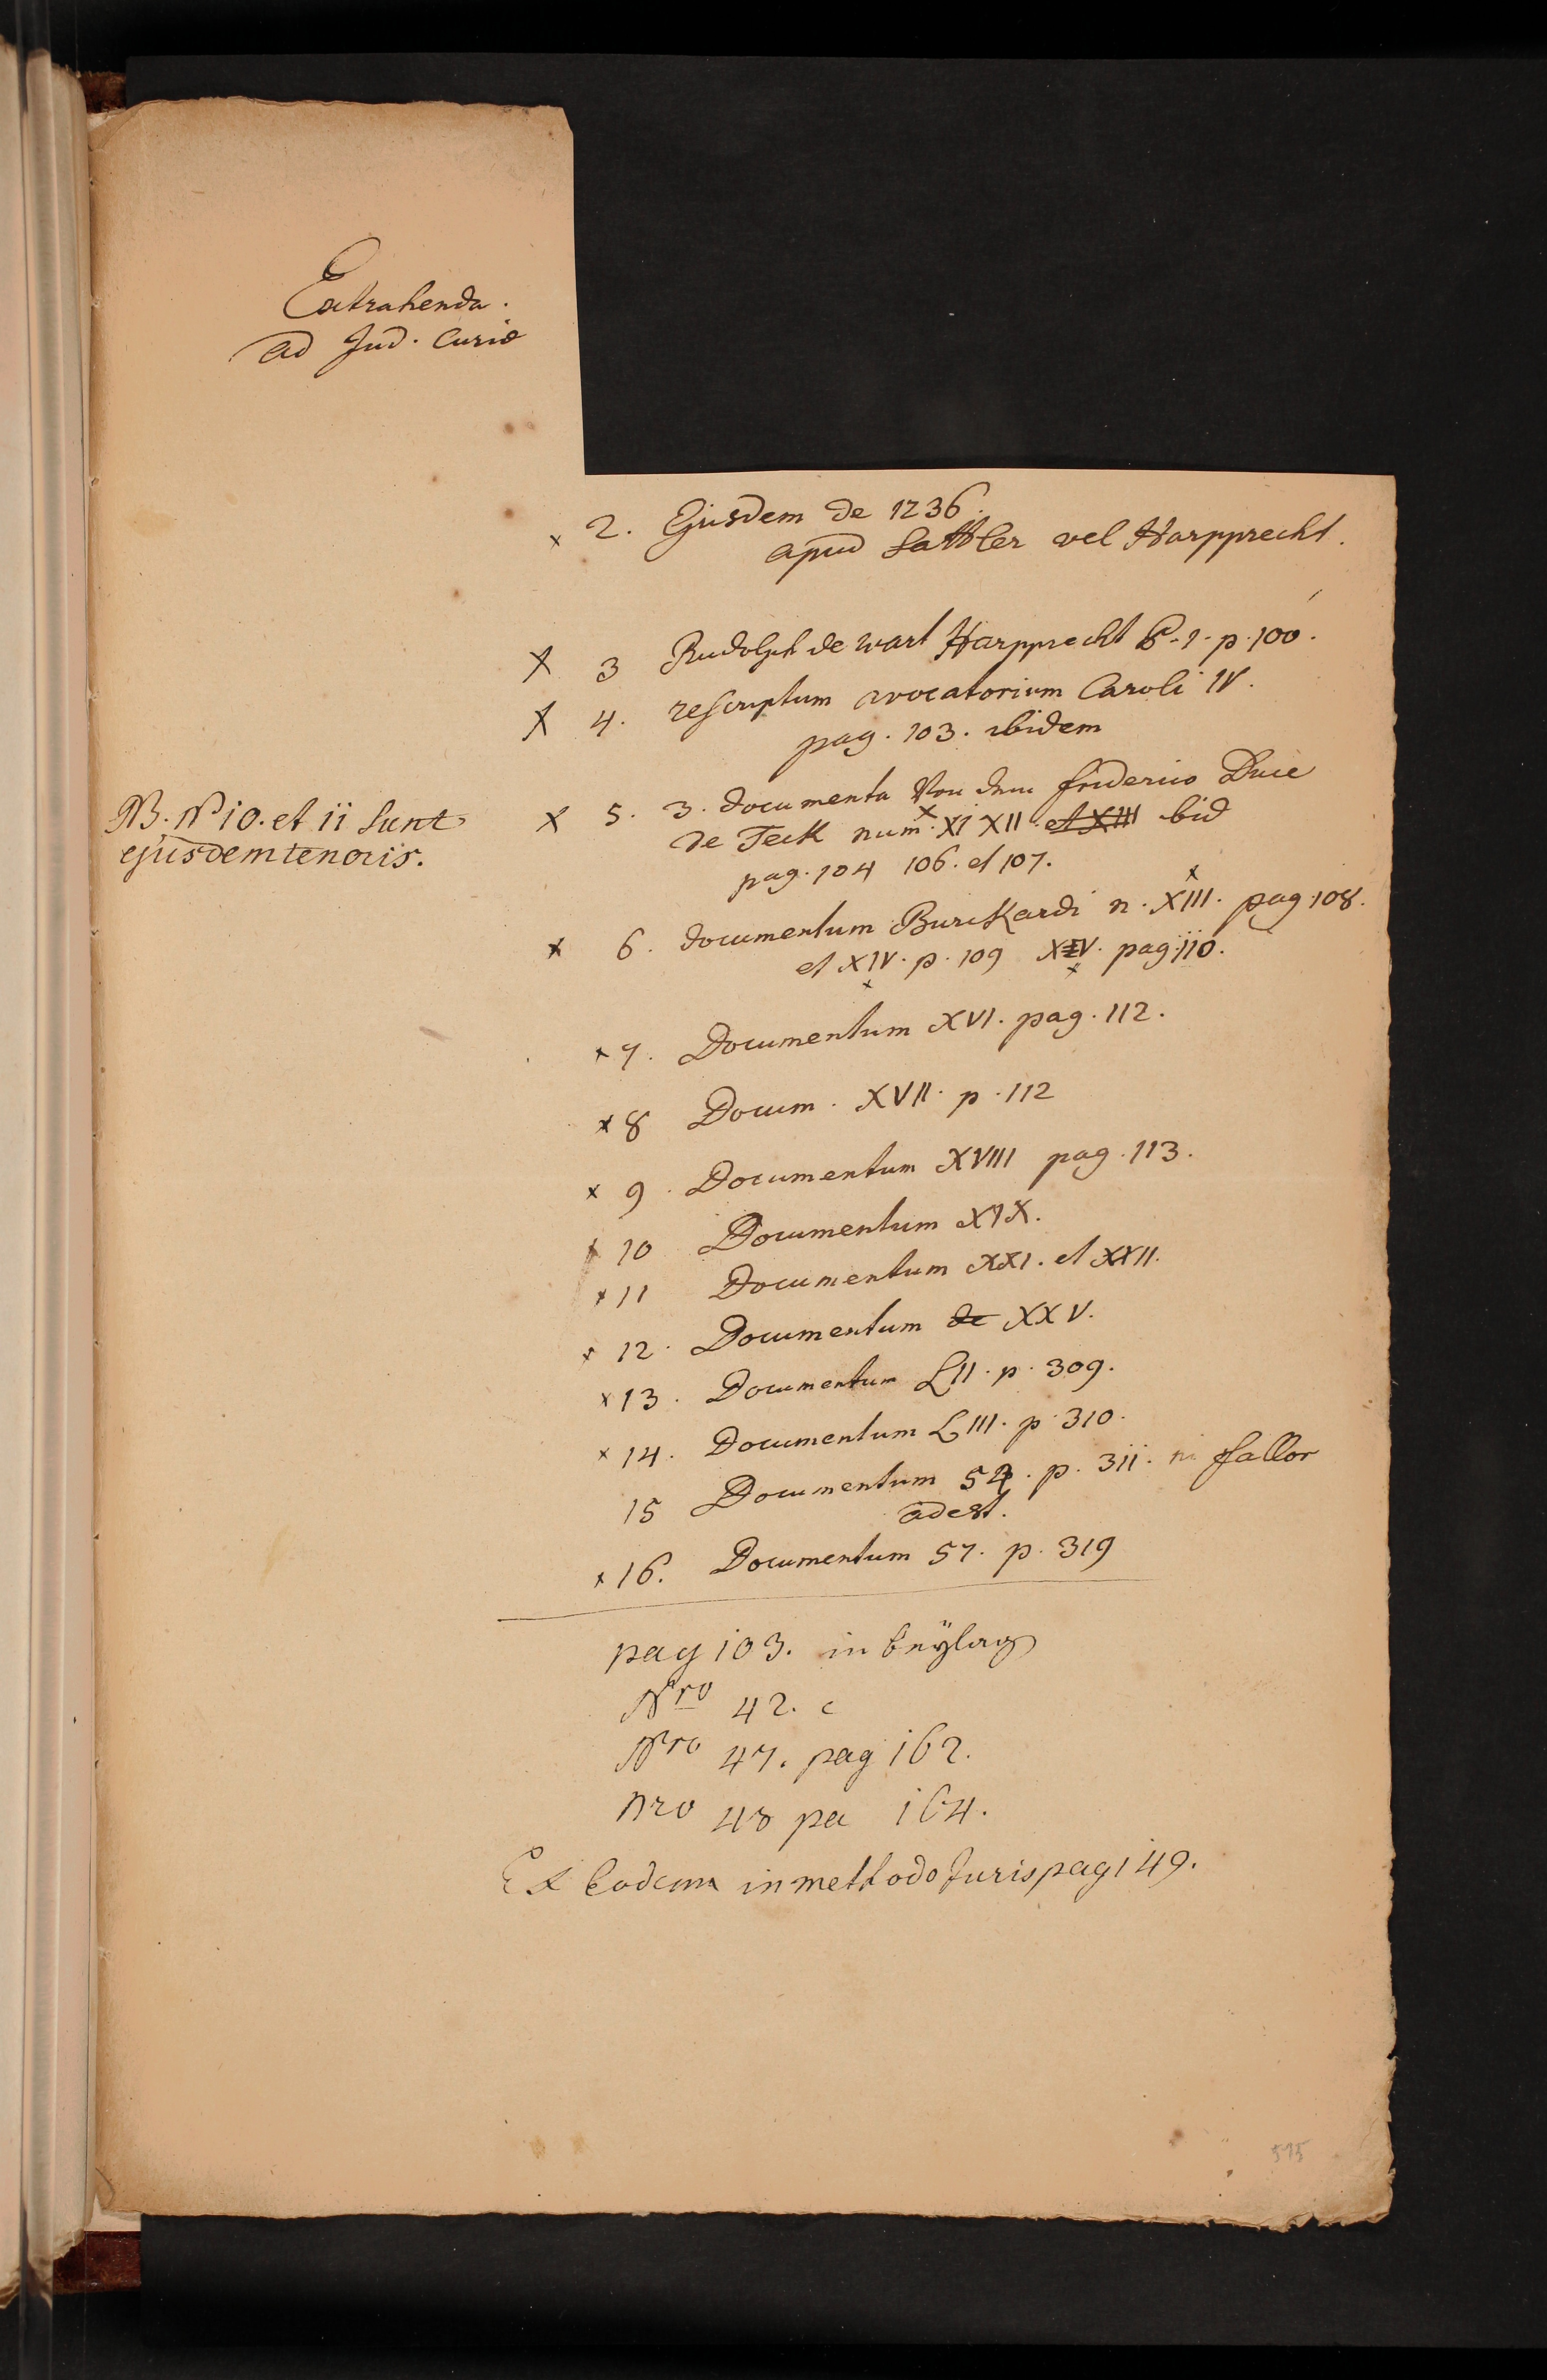 Extrahenda.
ad Jud. Curiæ
x 2. Ejusdem de 1236.
apud Sattler vel Harpprecht.
x 3 Rudolph de Wart Harpprecht P. 1. p. 100.
x 4. rescriptum avocatorium Caroli IV.
pag. 103. ibidem
NB. No 10. et 11 sunt
ejusdem tenoris.
x 5. 3. documenta Friderico Duce
de Teck num. XI XII et XIII ibid
pag. 104 106. et 107.
x 6. documentum Burckardi n. XIII. pag. 108.
et XIV. p. 109 XV. pag. 110.
x 7. Documentum XVI. pag. 112.
x 8 Docum. XVII. p. 112
x 9. Documentum XVIII pag. 113.
x 10 Documentum XIX.
x 11 Documentum XXI. et XXII.
x 12. Documentum de XXV.
x 13. Documentum LII. p. 309.
x 14. Documentum LIII. p. 310.
15 Documentum 54. p. 311. ni fallor
adest.
x 16. Documentum 57. p. 319
pag 103. in Beylag
Nro 42. c
Nro 47. pag 162.
nro 48 pa 164.
Ex Eodem in methodo Juris pag 149.